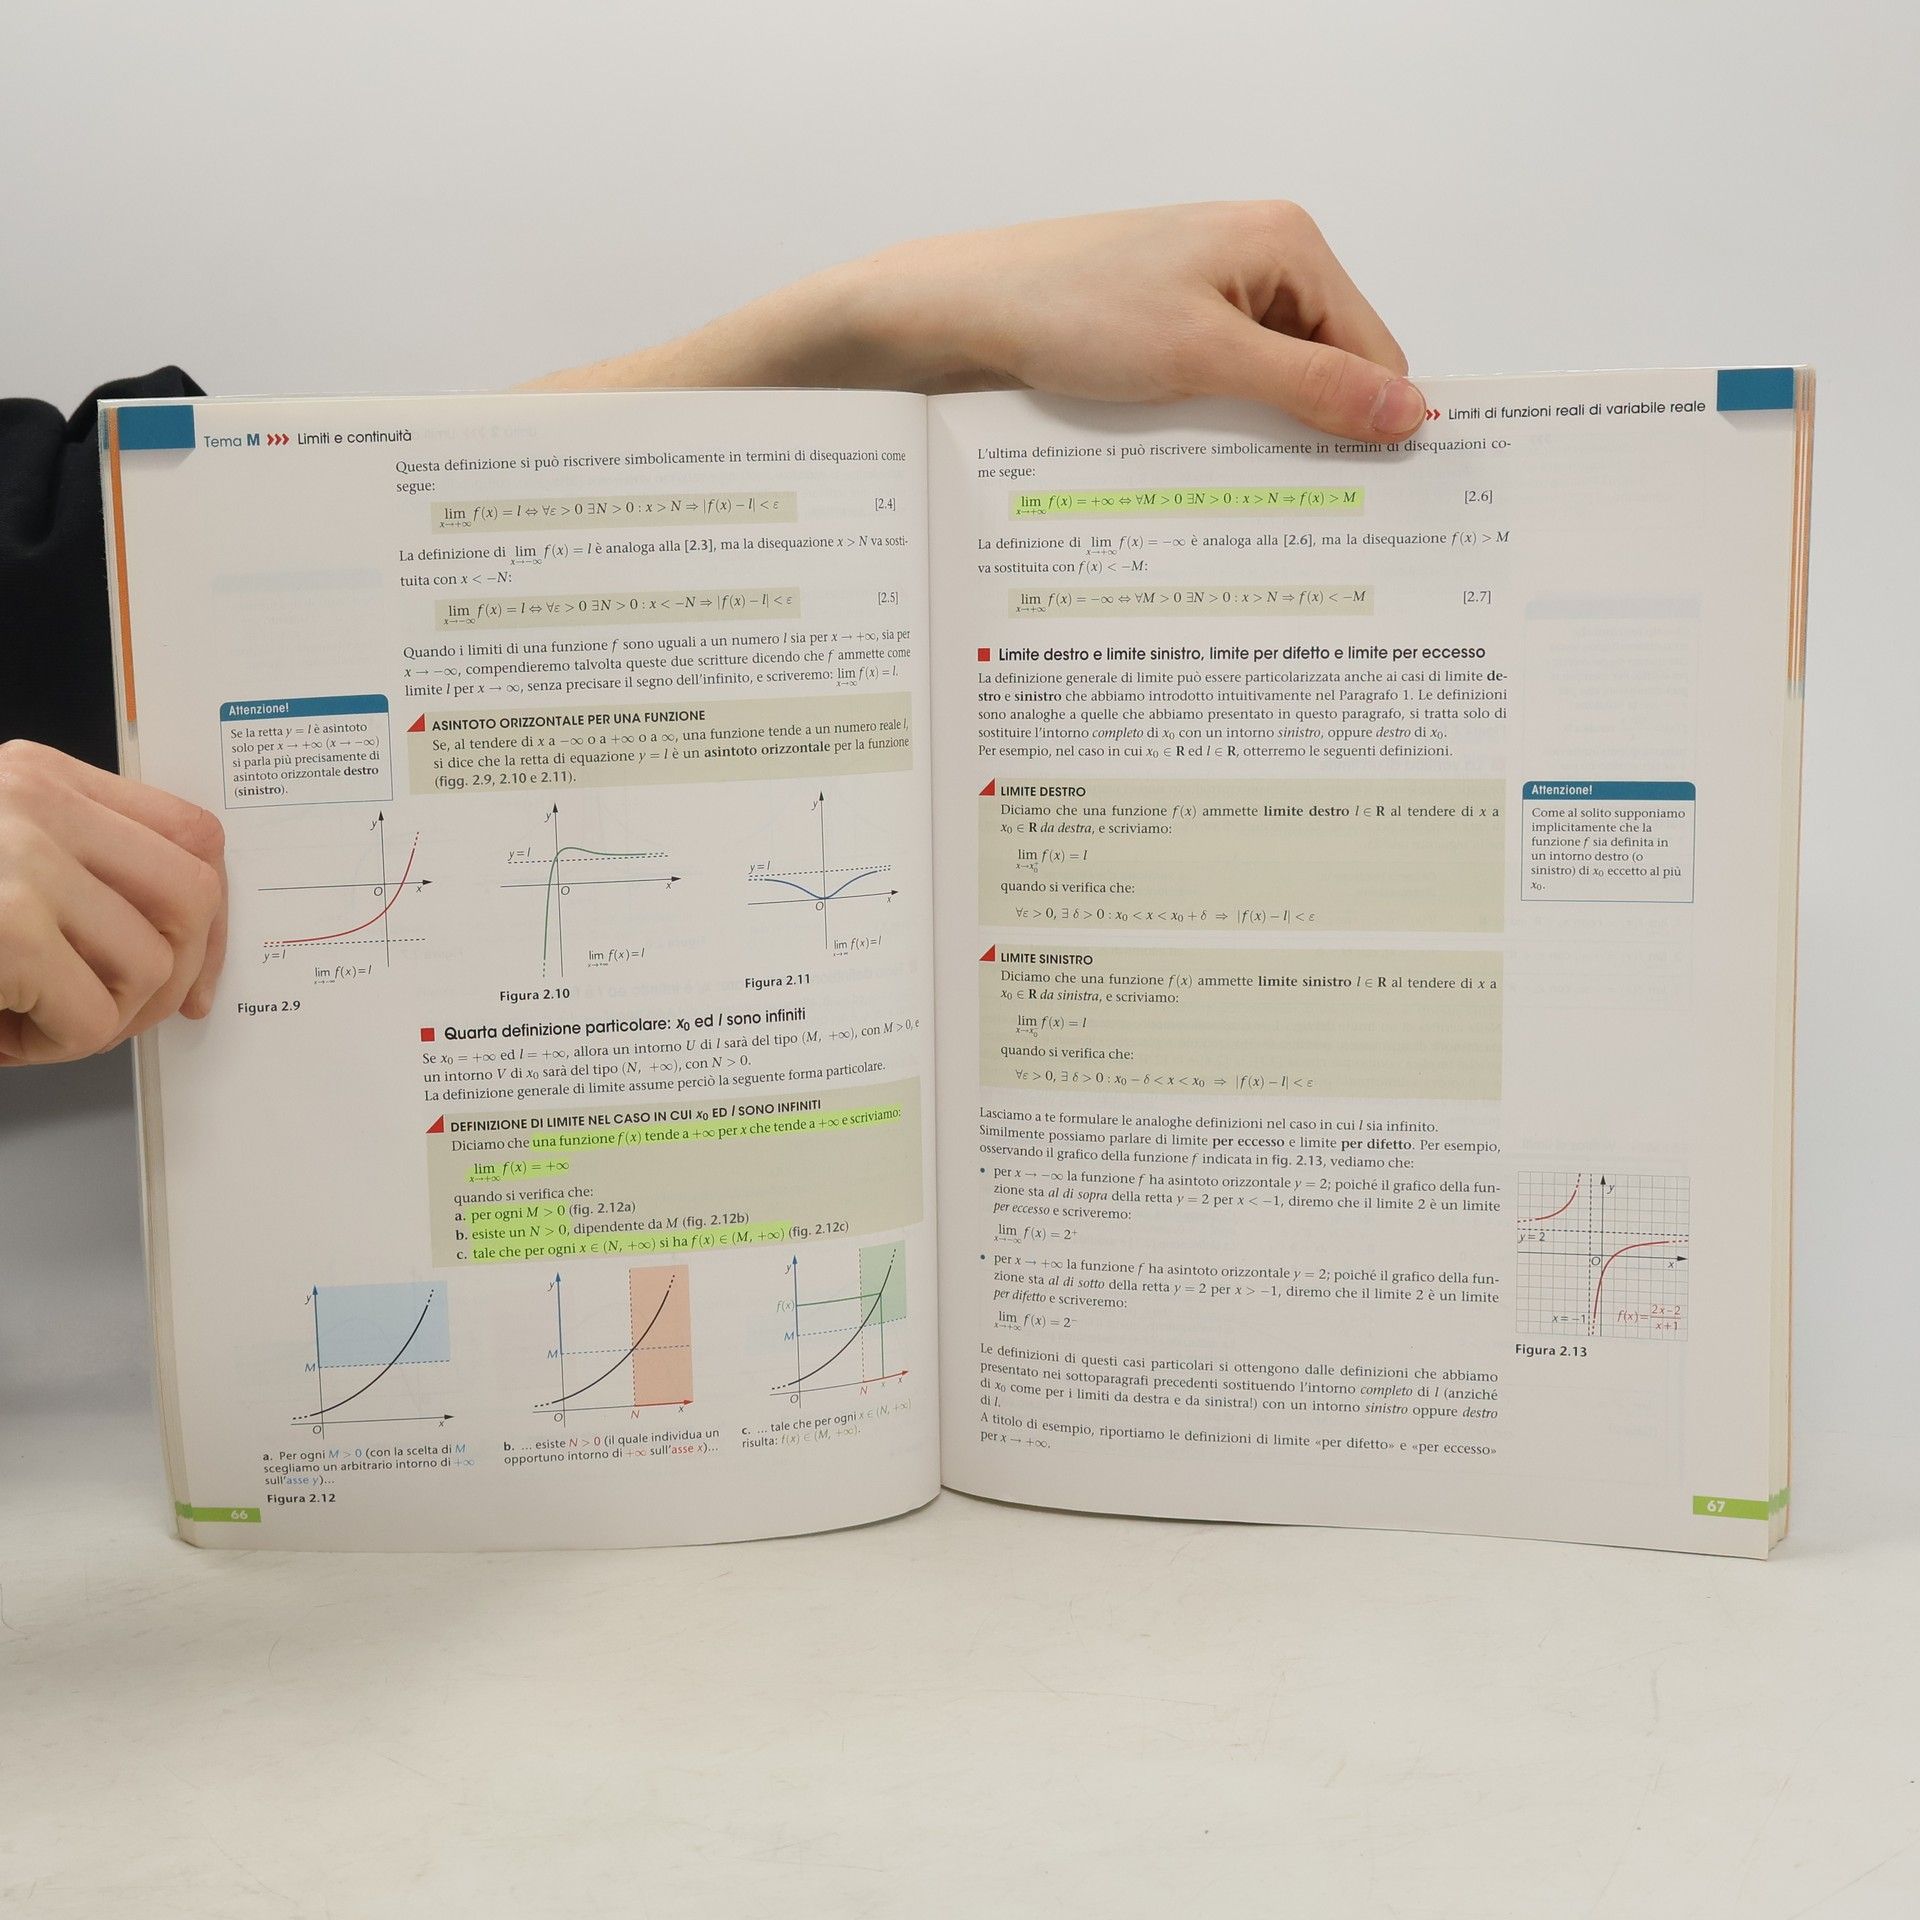 Tema M >>> Limiti e continuità
Questa definizione si può riscrivere simbolicamente in termini di disequazioni come
segue:
lim f(x) = l ⇔ ∀ε > 0 ∃N > 0 : x > N ⇒ |f(x) − l| < ε [2.4]
x→+∞
La definizione di lim f(x) = l è analoga alla [2.3], ma la disequazione x > N va sosti-
x→−∞
tuita con x < −N:
lim f(x) = l ⇔ ∀ε > 0 ∃N > 0 : x < −N ⇒ |f(x) − l| < ε [2.5]
x→−∞
Quando i limiti di una funzione f sono uguali a un numero l sia per x → +∞, sia per
x → −∞, compendieremo talvolta queste due scritture dicendo che f ammette come
limite l per x → ∞, senza precisare il segno dell'infinito, e scriveremo: lim f(x) = l.
x→∞
Attenzione!
Se la retta y = l è asintoto
solo per x → +∞ (x → −∞)
si parla più precisamente di
asintoto orizzontale destro
(sinistro).
ASINTOTO ORIZZONTALE PER UNA FUNZIONE
Se, al tendere di x a −∞ o a +∞ o a ∞, una funzione tende a un numero reale l,
si dice che la retta di equazione y = l è un asintoto orizzontale per la funzione
(figg. 2.9, 2.10 e 2.11).
y
O
x
y=l
lim f(x)=l
x→−∞
Figura 2.9
y
y=l
O
x
lim f(x)=l
x→+∞
Figura 2.10
y
y=l
O
x
lim f(x)=l
x→∞
Figura 2.11
Quarta definizione particolare: x0 ed l sono infiniti
Se x0 = +∞ ed l = +∞, allora un intorno U di l sarà del tipo (M, +∞), con M > 0, e
un intorno V di x0 sarà del tipo (N, +∞), con N > 0.
La definizione generale di limite assume perciò la seguente forma particolare.
DEFINIZIONE DI LIMITE NEL CASO IN CUI x0 ED l SONO INFINITI
Diciamo che una funzione f(x) tende a +∞ per x che tende a +∞ e scriviamo:
lim f(x) = +∞
x→+∞
quando si verifica che:
a. per ogni M > 0 (fig. 2.12a)
b. esiste un N > 0, dipendente da M (fig. 2.12b)
c. tale che per ogni x ∈ (N, +∞) si ha f(x) ∈ (M, +∞) (fig. 2.12c)
y
M
O
x
a. Per ogni M > 0 (con la scelta di M
scegliamo un arbitrario intorno di +∞
sull'asse y)...
y
M
O
N
x
b. ... esiste N > 0 (il quale individua un
opportuno intorno di +∞ sull'asse x)...
y
f(x)
M
O
N
x
x
c. ... tale che per ogni x ∈ (N, +∞)
risulta: f(x) ∈ (M, +∞).
Figura 2.12
66
>> Limiti di funzioni reali di variabile reale
L'ultima definizione si può riscrivere simbolicamente in termini di disequazioni co-
me segue:
lim f(x) = +∞ ⇔ ∀M > 0 ∃N > 0 : x > N ⇒ f(x) > M [2.6]
x→+∞
La definizione di lim f(x) = −∞ è analoga alla [2.6], ma la disequazione f(x) > M
x→+∞
va sostituita con f(x) < −M:
lim f(x) = −∞ ⇔ ∀M > 0 ∃N > 0 : x > N ⇒ f(x) < −M [2.7]
x→+∞
Limite destro e limite sinistro, limite per difetto e limite per eccesso
La definizione generale di limite può essere particolarizzata anche ai casi di limite de-
stro e sinistro che abbiamo introdotto intuitivamente nel Paragrafo 1. Le definizioni
sono analoghe a quelle che abbiamo presentato in questo paragrafo, si tratta solo di
sostituire l'intorno completo di x0 con un intorno sinistro, oppure destro di x0.
Per esempio, nel caso in cui x0 ∈ R ed l ∈ R, otterremo le seguenti definizioni.
LIMITE DESTRO
Diciamo che una funzione f(x) ammette limite destro l ∈ R al tendere di x a
x0 ∈ R da destra, e scriviamo:
lim f(x) = l
x→x0+
quando si verifica che:
∀ε > 0, ∃ δ > 0 : x0 < x < x0 + δ ⇒ |f(x) − l| < ε
Attenzione!
Come al solito supponiamo
implicitamente che la
funzione f sia definita in
un intorno destro (o
sinistro) di x0 eccetto al più
x0.
LIMITE SINISTRO
Diciamo che una funzione f(x) ammette limite sinistro l ∈ R al tendere di x a
x0 ∈ R da sinistra, e scriviamo:
lim f(x) = l
x→x0−
quando si verifica che:
∀ε > 0, ∃ δ > 0 : x0 − δ < x < x0 ⇒ |f(x) − l| < ε
Lasciamo a te formulare le analoghe definizioni nel caso in cui l sia infinito.
Similmente possiamo parlare di limite per eccesso e limite per difetto. Per esempio,
osservando il grafico della funzione f indicata in fig. 2.13, vediamo che:
• per x → −∞ la funzione f ha asintoto orizzontale y = 2; poiché il grafico della fun-
zione sta al di sopra della retta y = 2 per x < −1, diremo che il limite 2 è un limite
per eccesso e scriveremo:
lim f(x) = 2+
x→−∞
• per x → +∞ la funzione f ha asintoto orizzontale y = 2; poiché il grafico della fun-
zione sta al di sotto della retta y = 2 per x > −1, diremo che il limite 2 è un limite
per difetto e scriveremo:
lim f(x) = 2−
x→+∞
y
y=2
O
x
x=−1
f(x)=2x−2/x+1
Figura 2.13
Le definizioni di questi casi particolari si ottengono dalle definizioni che abbiamo
presentato nei sottoparagrafi precedenti sostituendo l'intorno completo di l (anziché
di x0 come per i limiti da destra e da sinistra!) con un intorno sinistro oppure destro
di l.
A titolo di esempio, riportiamo le definizioni di limite «per difetto» e «per eccesso»
per x → +∞.
67